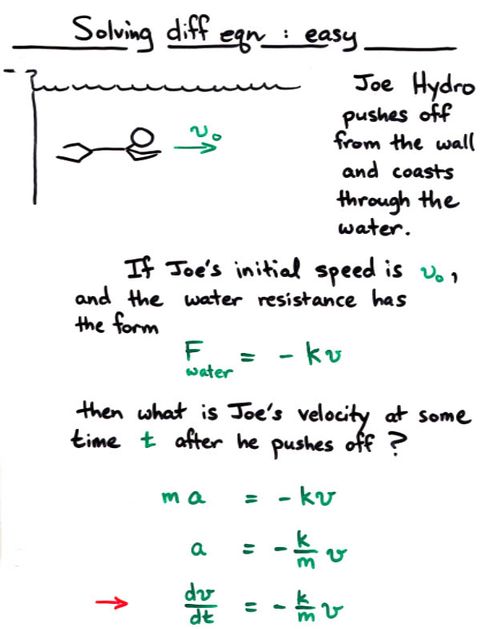 Solving diff eqn : easy
v₀
Joe Hydro
pushes off
from the wall
and coasts
through the
water.
If Joe's initial speed is v₀,
and the water resistance has
the form
F_water = - kv
then what is Joe's velocity at some
time t after he pushes off ?
m a = - kv
a = - k/m v
→ dv/dt = - k/m v